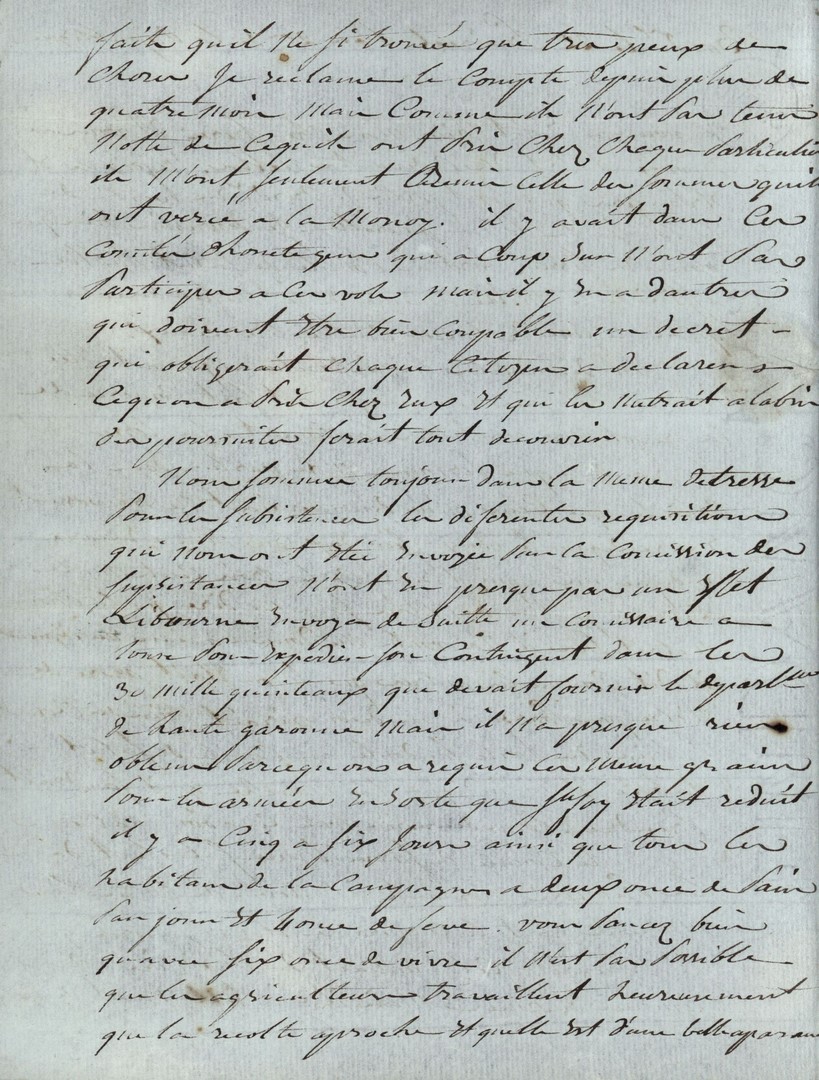 faite quil ne si trouvée que tres peux de
chose je reclame le compte depuis plus de
quatre mois mais comme ils n'ont pas tenu
notte de cequils ont pris chez chaque particulier
ils m'ont seulement remis celle des sommes quils
ont versé a la monoy. il y avait dans ces
comités dhonetegens qui a coup sur n'ont pas
participer a ces vols mais il y en a dautres
qui doivent etre bien coupable un decret
qui obligerait chaque citoyen a declarer
cequon a pris chez eux et qui les metrait a labri
des poursuites ferait tout decouvrir
Nous sommes toujours dans la meme detresse
pour les subsistences les diferentes requisitions
qui nous ont étée envoyée par la comission des
supsistances n'ont eu presque pas un effet
Libourne envoya de suitte un comissaire a
pour expedier son contingent dans les
30 mille quinteaux que devait fournir le depart.me
de haute garonne mais il n'a presque rien
obtenu parcequon a requis ces meme grains
pour les armées ensorte que etait reduit
il y a cinq a six jours ainsi que tous les
habitans de la campagnes a deux once de pain
par jour et 4 once de feve. vous pancez bien
quavec six once de vivre il n'est pas possible
que les agriculteurs travaillent heureusement
que la recolte aproche et quelle est d'une belle aparance